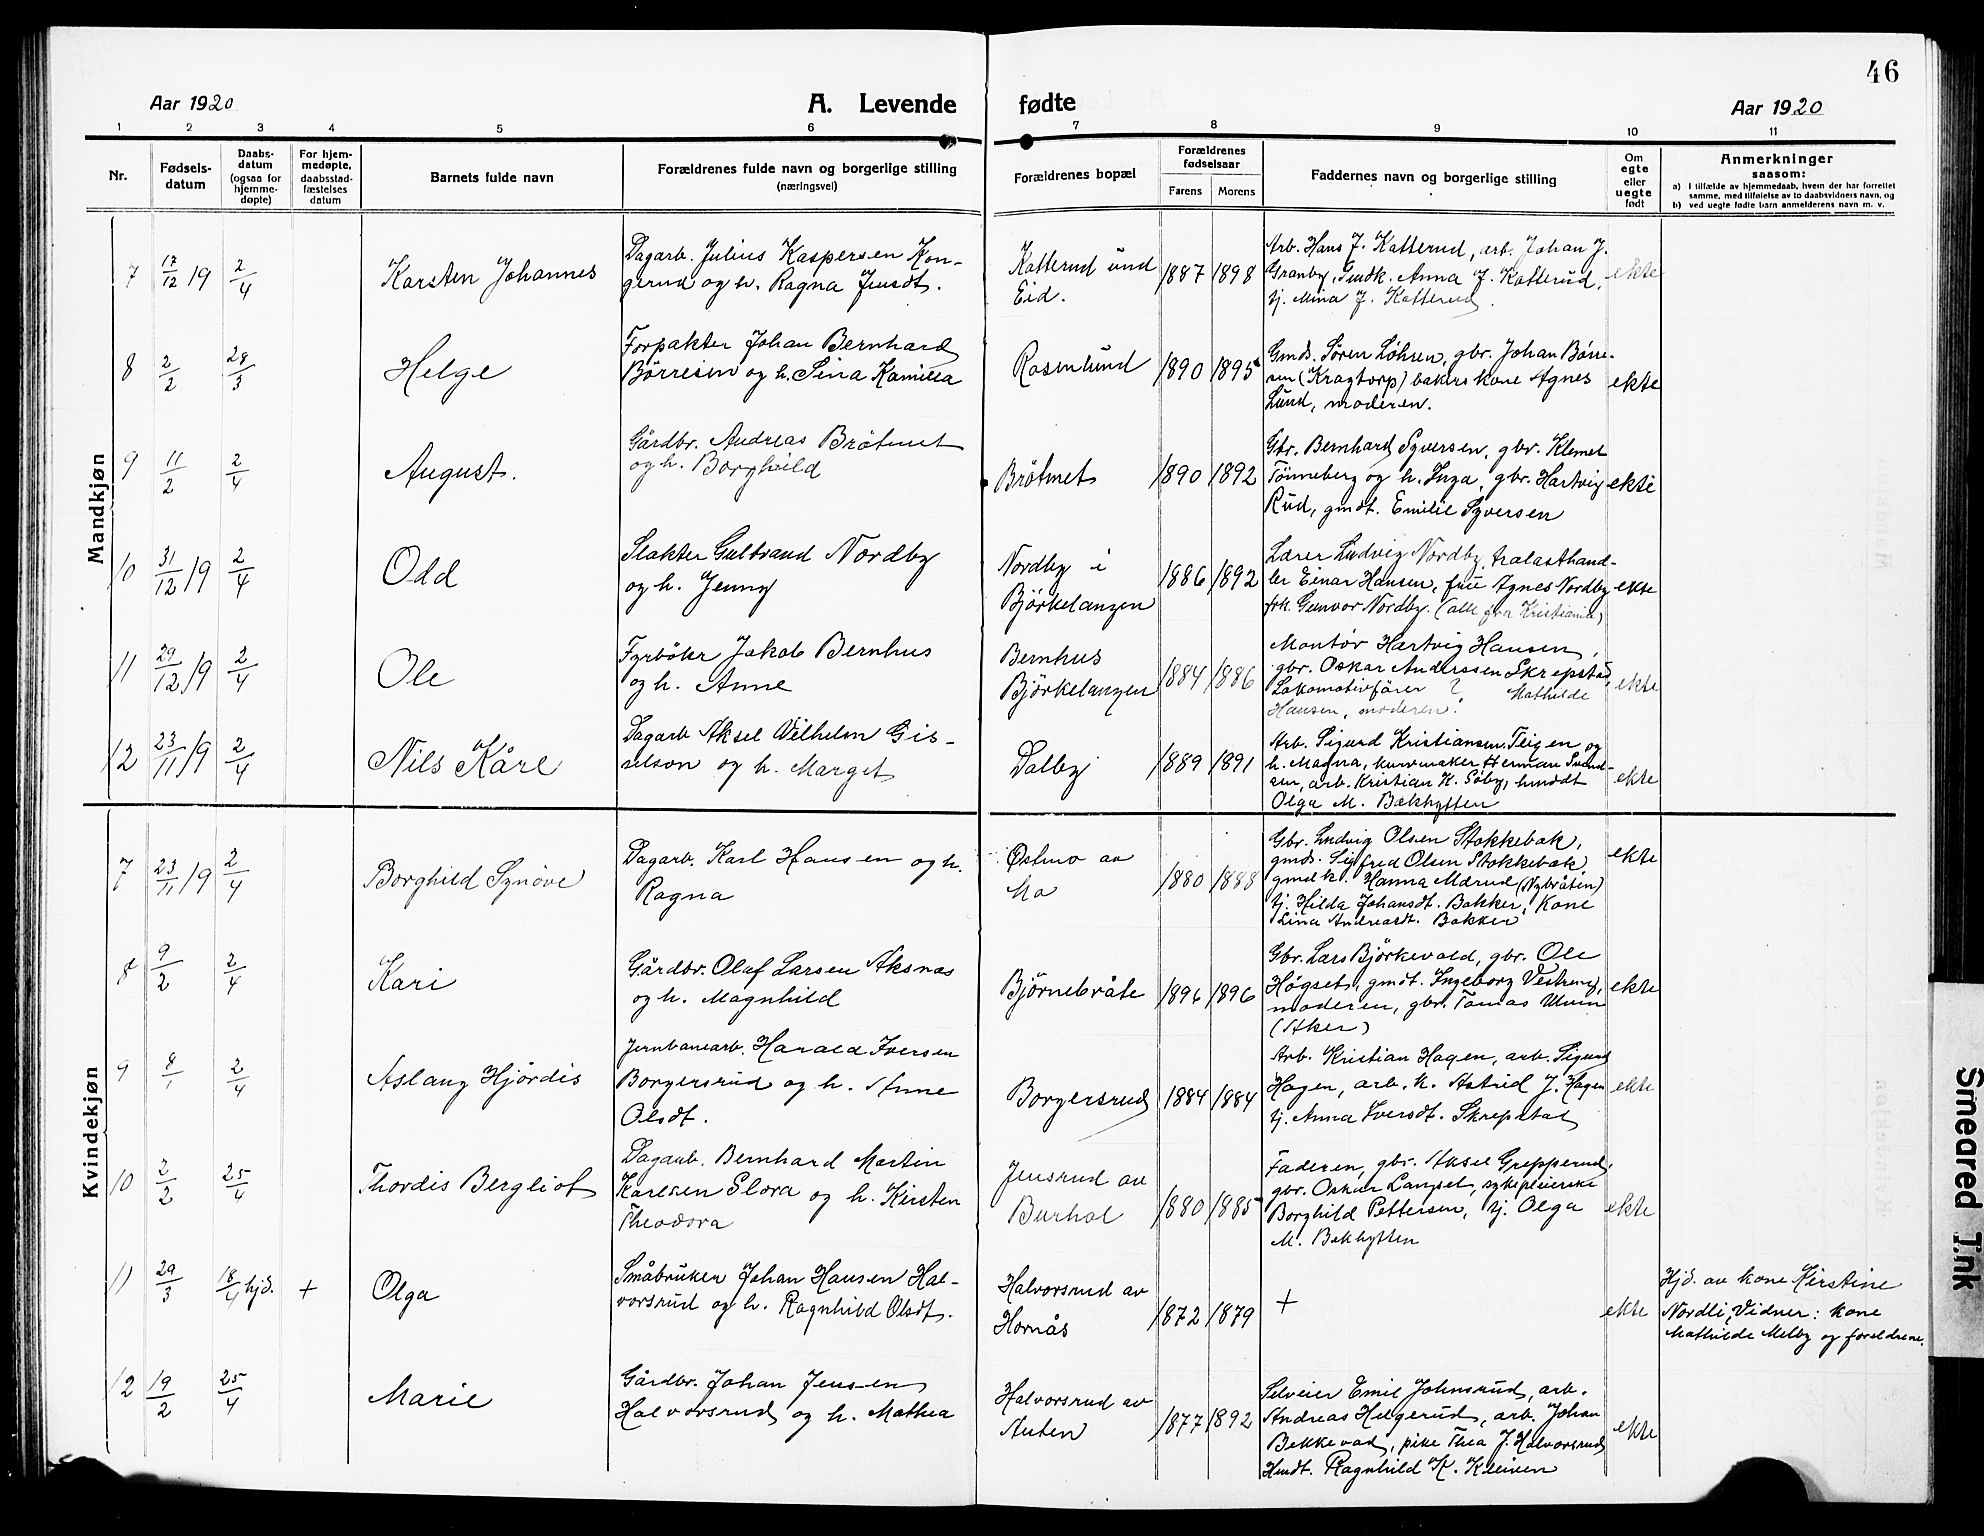 46
Aar 1920
A. Levende fødte
Aar 1920
1 2 3 4 5 6 7 8 9 10 11
Nr.
Fødsels-
datum
Daabs-
datum
(ogsaa for
hjemme-
døpte)
For hjem-
medøpte,
daabsstad-
fæstelses
datum
Barnets fulde navn
Forældrenes fulde navn og borgerlige stilling
(næringsvei)
Forældrenes bopæl
Forældrenes
fødselsaar
Farens Morens
Faddernes navn og borgerlige stilling
Om
egte
eller
uegte
født
Anmerkninger
saasom:
a) I tilfælde av hjemmedaab, hvem der har forrettet
samme, med tilføielse av to daabsvidners navn, og
b) ved uegte fødte barn anmelderens navn m. v.
Mandkjøn
7 17/12 19 2/4 Karsten Johannes
Dagarb. Julius Kaspersen Kon-
gerud og h. Ragna Jensdt.
Katterud und
Eid.
1887 1898
Arb. Hans J. Katterud, arb. Johan J.
Granby, Gmdk. Anna J. Katterud,
tj. Mina J. Katterud.
ekte
8 2/2 28/3 Helge
Forpakter Johan Bernhard
Børresen og h. Sina Kamilla
Rosenlund
1890 1895
Gmds. Søren Løhren, gbr. Johan Børre-
sen (Kragtorp) bakers kone Agnes
Lund, moderen.
ekte
9 11/2 2/4 August.
Gårdbr. Andreas Bråtnet
og h. Borghild
Bråtnet
1890 1892
Gbr. Bernhard Syversen, gbr. Klemet
Tønneberg og h. Inga, gbr. Hartvig
Rud, gmdt. Emilie Syversen
ekte
10 31/12 19 2/4 Odd
Slakter Gulbrand Nordby
og h. Jenny
Nordby i
Bjørkelangen
1886 1892
Lærer Ludvig Nordby, trælasthand-
ler Einar Hansen, frue Agnes Nordby
frk. Gunvor Nordby. (alle fra Kristiania)
ekte
11 29/12 19 2/4 Ole
Fyrbøter Jakob Bernhus
og h. Anne
Bernhus
Bjørkelangen
1884 1886
Montør Hartvig Hansen,
gbr. Oskar Anderssen Skrepstad,
Lokomotivfører ? Mathilde
Hansen, moderen.
ekte
12 23/11 19 2/4 Nils Kåre
Dagarb Aksel Vilhelm Gis-
selson og h. Marget
Dalby
1889 1891
Arb. Sigurd Kristiansen Teigen og
h. Magna, kurvmaker Herman Svend-
sen, arb. Kristian K. Søby, husdt
Olga M. Bækhytten
ekte
Kvindekjøn
7 23/11 19 2/4 Borghild Synøve
Dagarb. Karl Hansen og h.
Ragna
Østmo av
Mo
1880 1888
Gbr. Ludvig Olsen Stokkebæk,
gmds. Sigfred Olsen Stokkebæk,
gmdk. Hanna Mærud (Nybråten)
tj. Hilda Johansdt. Bakker, Kone
Lina Andreasdt. Bakker
ekte
8 9/2 2/4 Kari
Gårdbr. Olaf Larsen Aksnæs
og h. Magnhild
Bjørnebråte
1896 1896
Gbr. Lars Bjørkevold, gbr. Ole
Høgset, gmdt. Ingeborg Vestreng,
moderen, gbr. Tomas Ulven
(Aker)
ekte
9 8/1 2/4 Aslaug Hjørdis
Jernbanearb. Harald Iversen
Borgersrud og h. Anne
Olsdt.
Borgersrud
1884 1884
Arb. Kristian Hagen, arb. Sigurd
Hagen, arb. k. Astrid J. Hagen
tj. Anna Iversdt. Skrepstad
ekte
10 2/2 25/4 Thordis Bergliot
Dagarb. Bernhard Martin
Karlsen Slora og h. Kirsten
Theodora
Jensrud av
Burhol
1880 1885
Faderen, gbr. Aksel Grepperud,
gbr. Oskar Langset, sykepleierske
Borghild Pettersen, tj. Olga
M. Bekhytten
ekte
11 29/3 18/4 hjd. + Olga
Småbruker Johan Hansen Hal-
vorsrud og h. Ragnhild Olsdt.
Halvorsrud av
Hornås
1872 1879
+
ekte
Hjd. av kone Kirstine
Nordli, Vidner: kone
Mathilde Melby og foreldrene.
12 19/2 25/4 Marie
Gårdbr. Johan Jensen
Halvorsrud og h. Mathea
Halvorsrud av
Auten
1877 1892
Selveier Emil Johnsrud, arb.
Andreas Helgerud, arb. Johan
Bekkevad, pike Thea J. Halvorsrud
Husdt. Ragnhild K. Kleiven
ekte
Smeared Ink